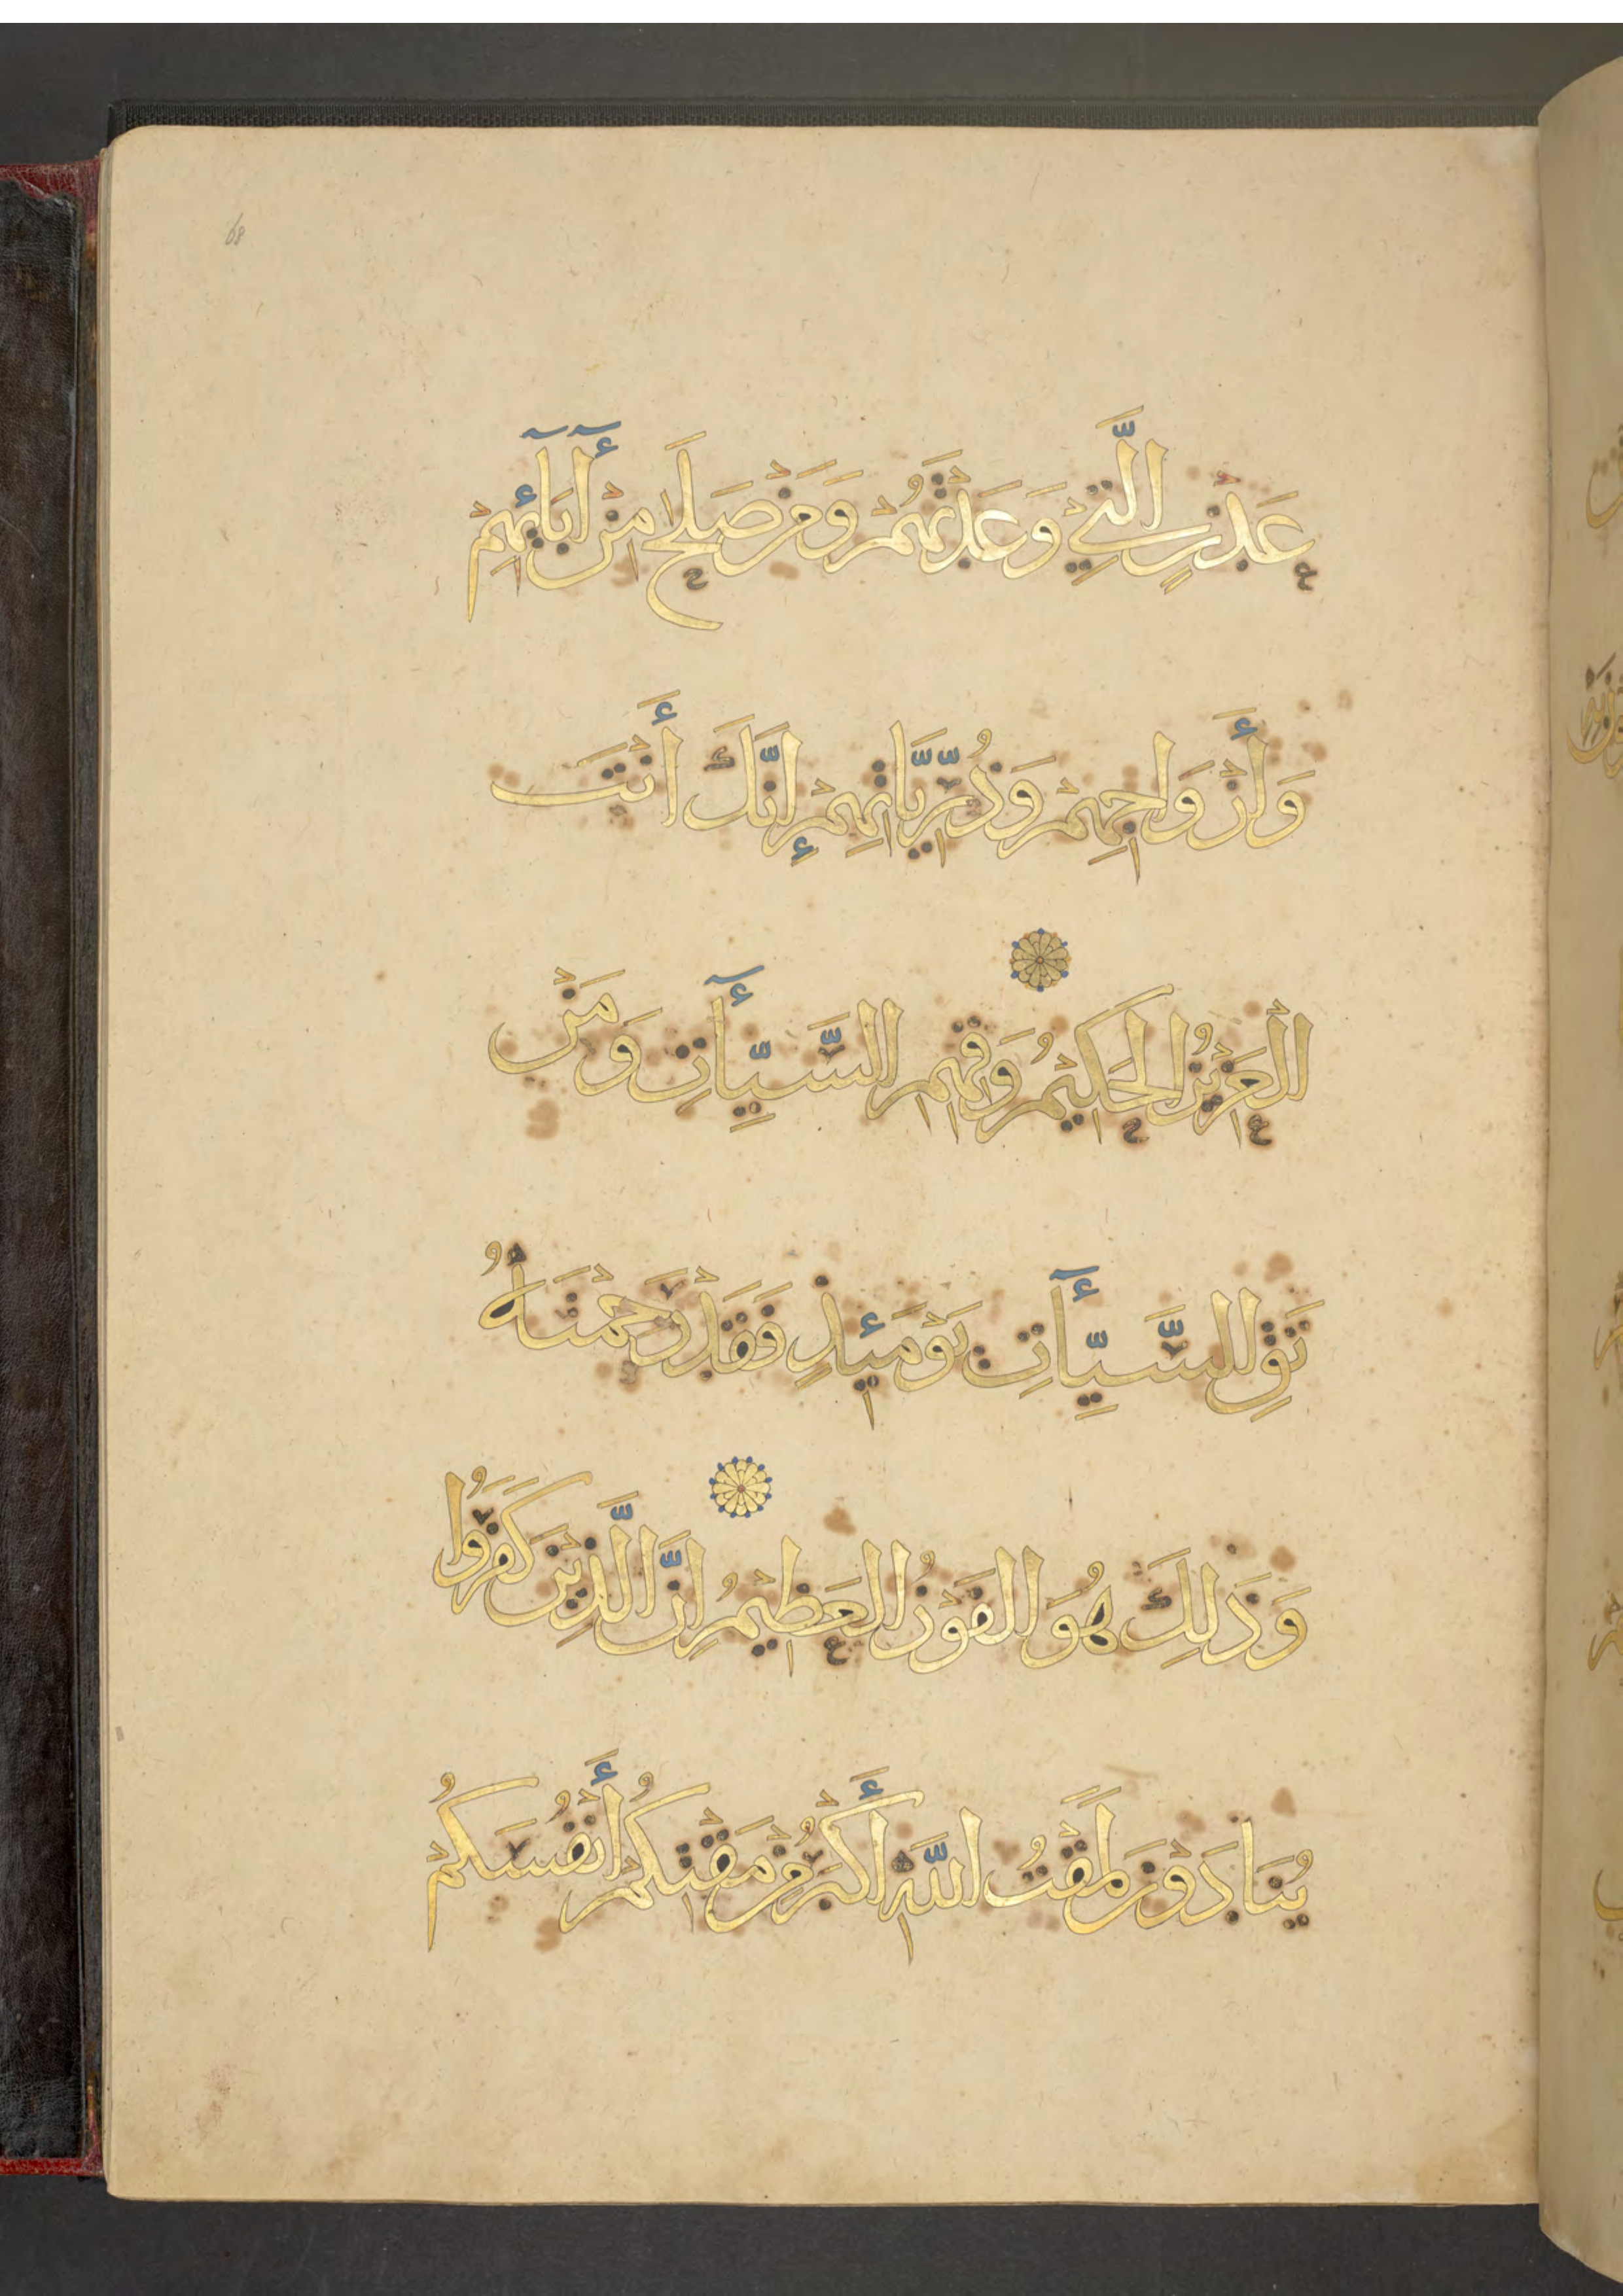 68
عَدْنٍ الَّتِي وَعَدْتَهُمْ وَمَنْ صَلَحَ مِنْ آبَائِهِمْ
وَأَزْوَاجِهِمْ وَذُرِّيَّاتِهِمْ إِنَّكَ أَنْتَ
الْعَزِيزُ الْحَكِيمُ وَقِهِمُ السَّيِّآتِ وَمَنْ
تَقِ السَّيِّآتِ يَوْمَئِذٍ فَقَدْ رَحِمْتَهُ
وَذَلِكَ هُوَ الْفَوْزُ الْعَظِيمُ اِنَّ الَّذِينَ كَفَرُوا
يُنَادَوْنَ لَمَقْتُ اللَّهِ أَكْبَرُ مِنْ مَقْتِكُمْ أَنْفُسَكُمْ